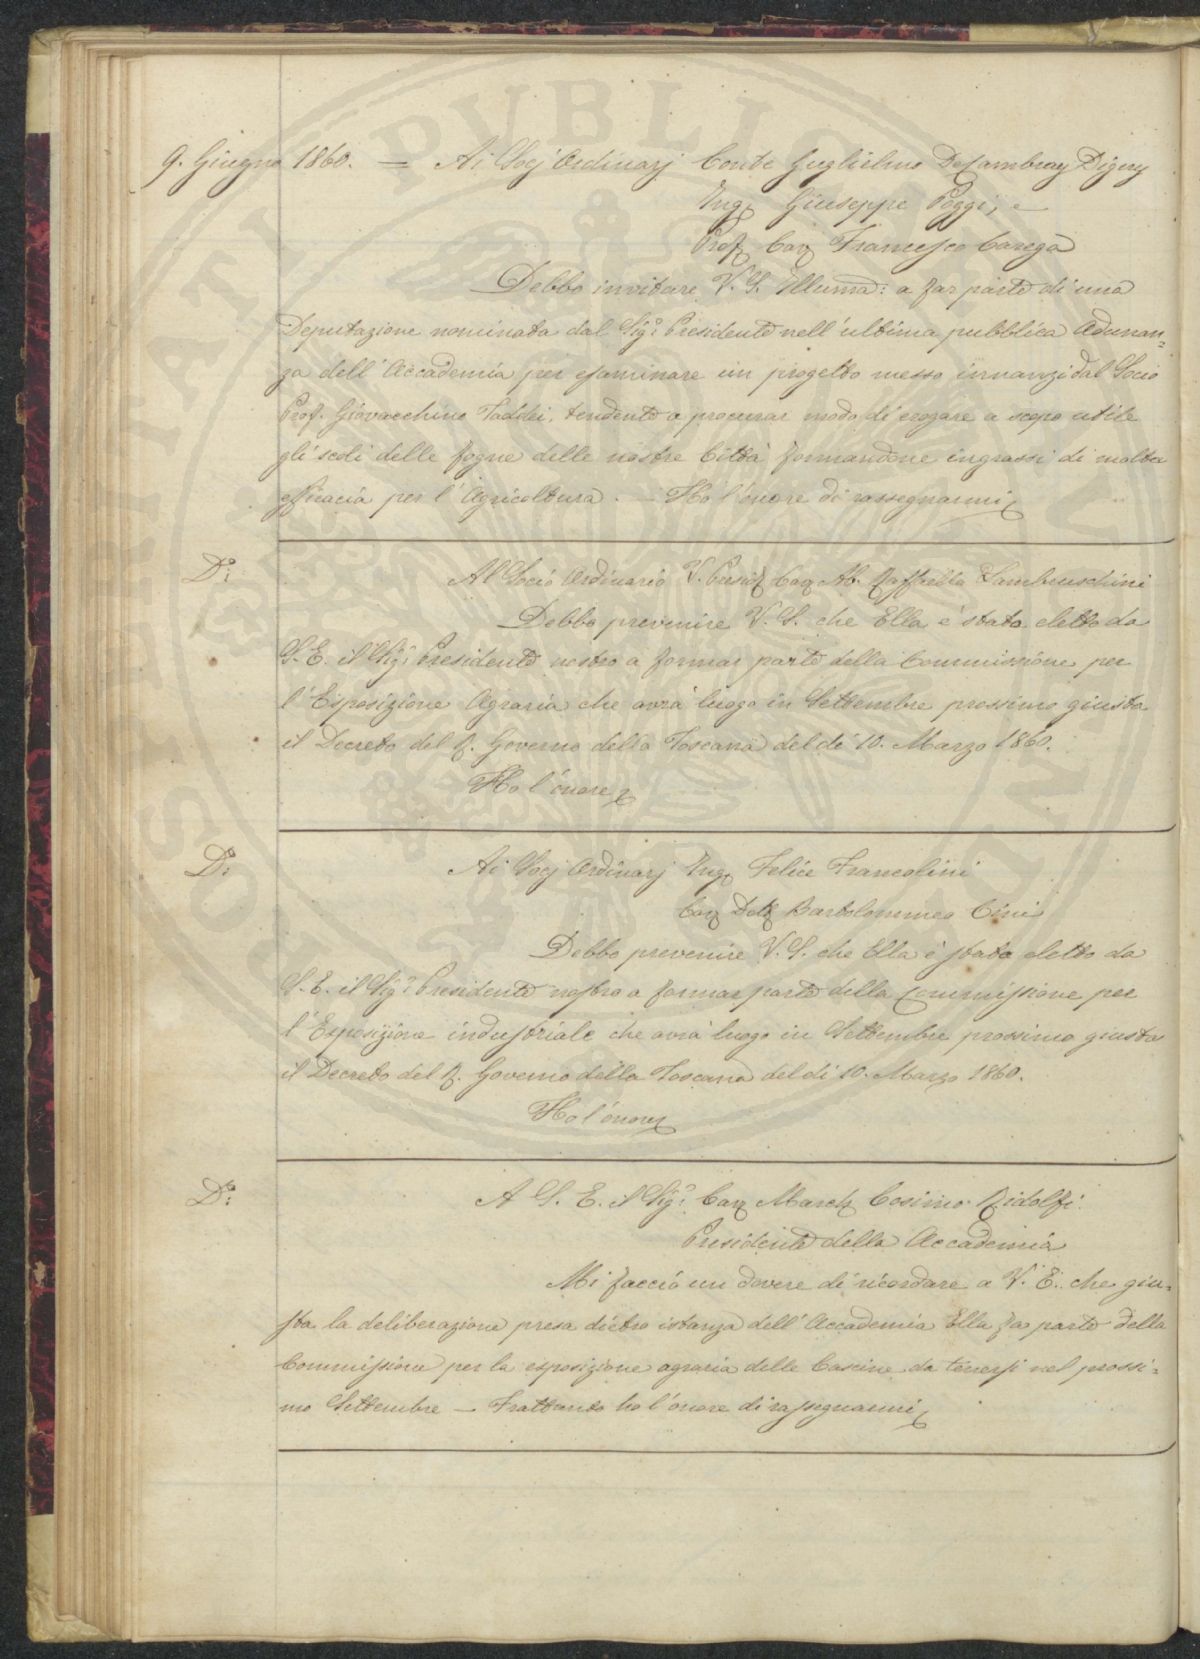 9. Giugno 1860. = Ai Socj Ordinarj Conte Guglielmo De Cambray Digny
Ing. Giuseppe Poggi, e
Prof. Cav. Francesco Carega
Debbo invitare V. S. Illuma: a far parte di una
Deputazione nominata dal Sigr: Presidente nell'ultima pubblica Adunan=
za dell'Accademia per esaminare un progetto messo innanzi dal Socio
Prof. Giovacchino Taddei, tendente a procurar modo di erogare a scopo utile
gli scoli delle fogne delle nostre Città formandone ingrassi di molta
efficacia per l'Agricoltura. — Ho l'onore di rassegnarmi
Do: Al Socio Ordinario V. Presid. Cav. Ab. Raffaello Lambruschini
Debbo prevenire V. S. che Ella è stato eletto da
S. E. il Sigr: Presidente nostro a formar parte della Commissione per
l'Esposizione Agraria che avrà luogo in Settembre prossimo giusta
il Decreto del R. Governo della Toscana del dì 10. Marzo 1860.
Ho l'onore
Do: Ai Socj Ordinarj Ing. Felice Francolini
Cav. Dott. Bartolommeo Cini
Debbo prevenire V. S. che Ella è stato eletto da
S. E. il Sigr: Presidente nostro a formar parte della Commissione per
l'Esposizione industriale che avrà luogo in Settembre prossimo giusta
il Decreto del R. Governo della Toscana del dì 10. Marzo 1860.
Ho l'onore
Do: A S. E. il Sigr: Cav. March. Cosimo Ridolfi
Presidente della Accademia
Mi faccio un dovere di ricordare a V. E. che giu=
sta la deliberazione presa dietro istanza dell'Accademia Ella fa parte della
Commissione per la esposizione agraria delle Cascine da tenersi nel prossi=
mo Settembre — Frattanto ho l'onore di rassegnarmi